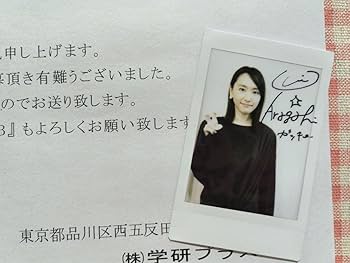 申し上げます。
頂き有難うございました。
のでお送り致します。
』もよろしくお願い致します
東京都品川区西五反田
(株)学研プラス
☆
Aragaki
ガッキー